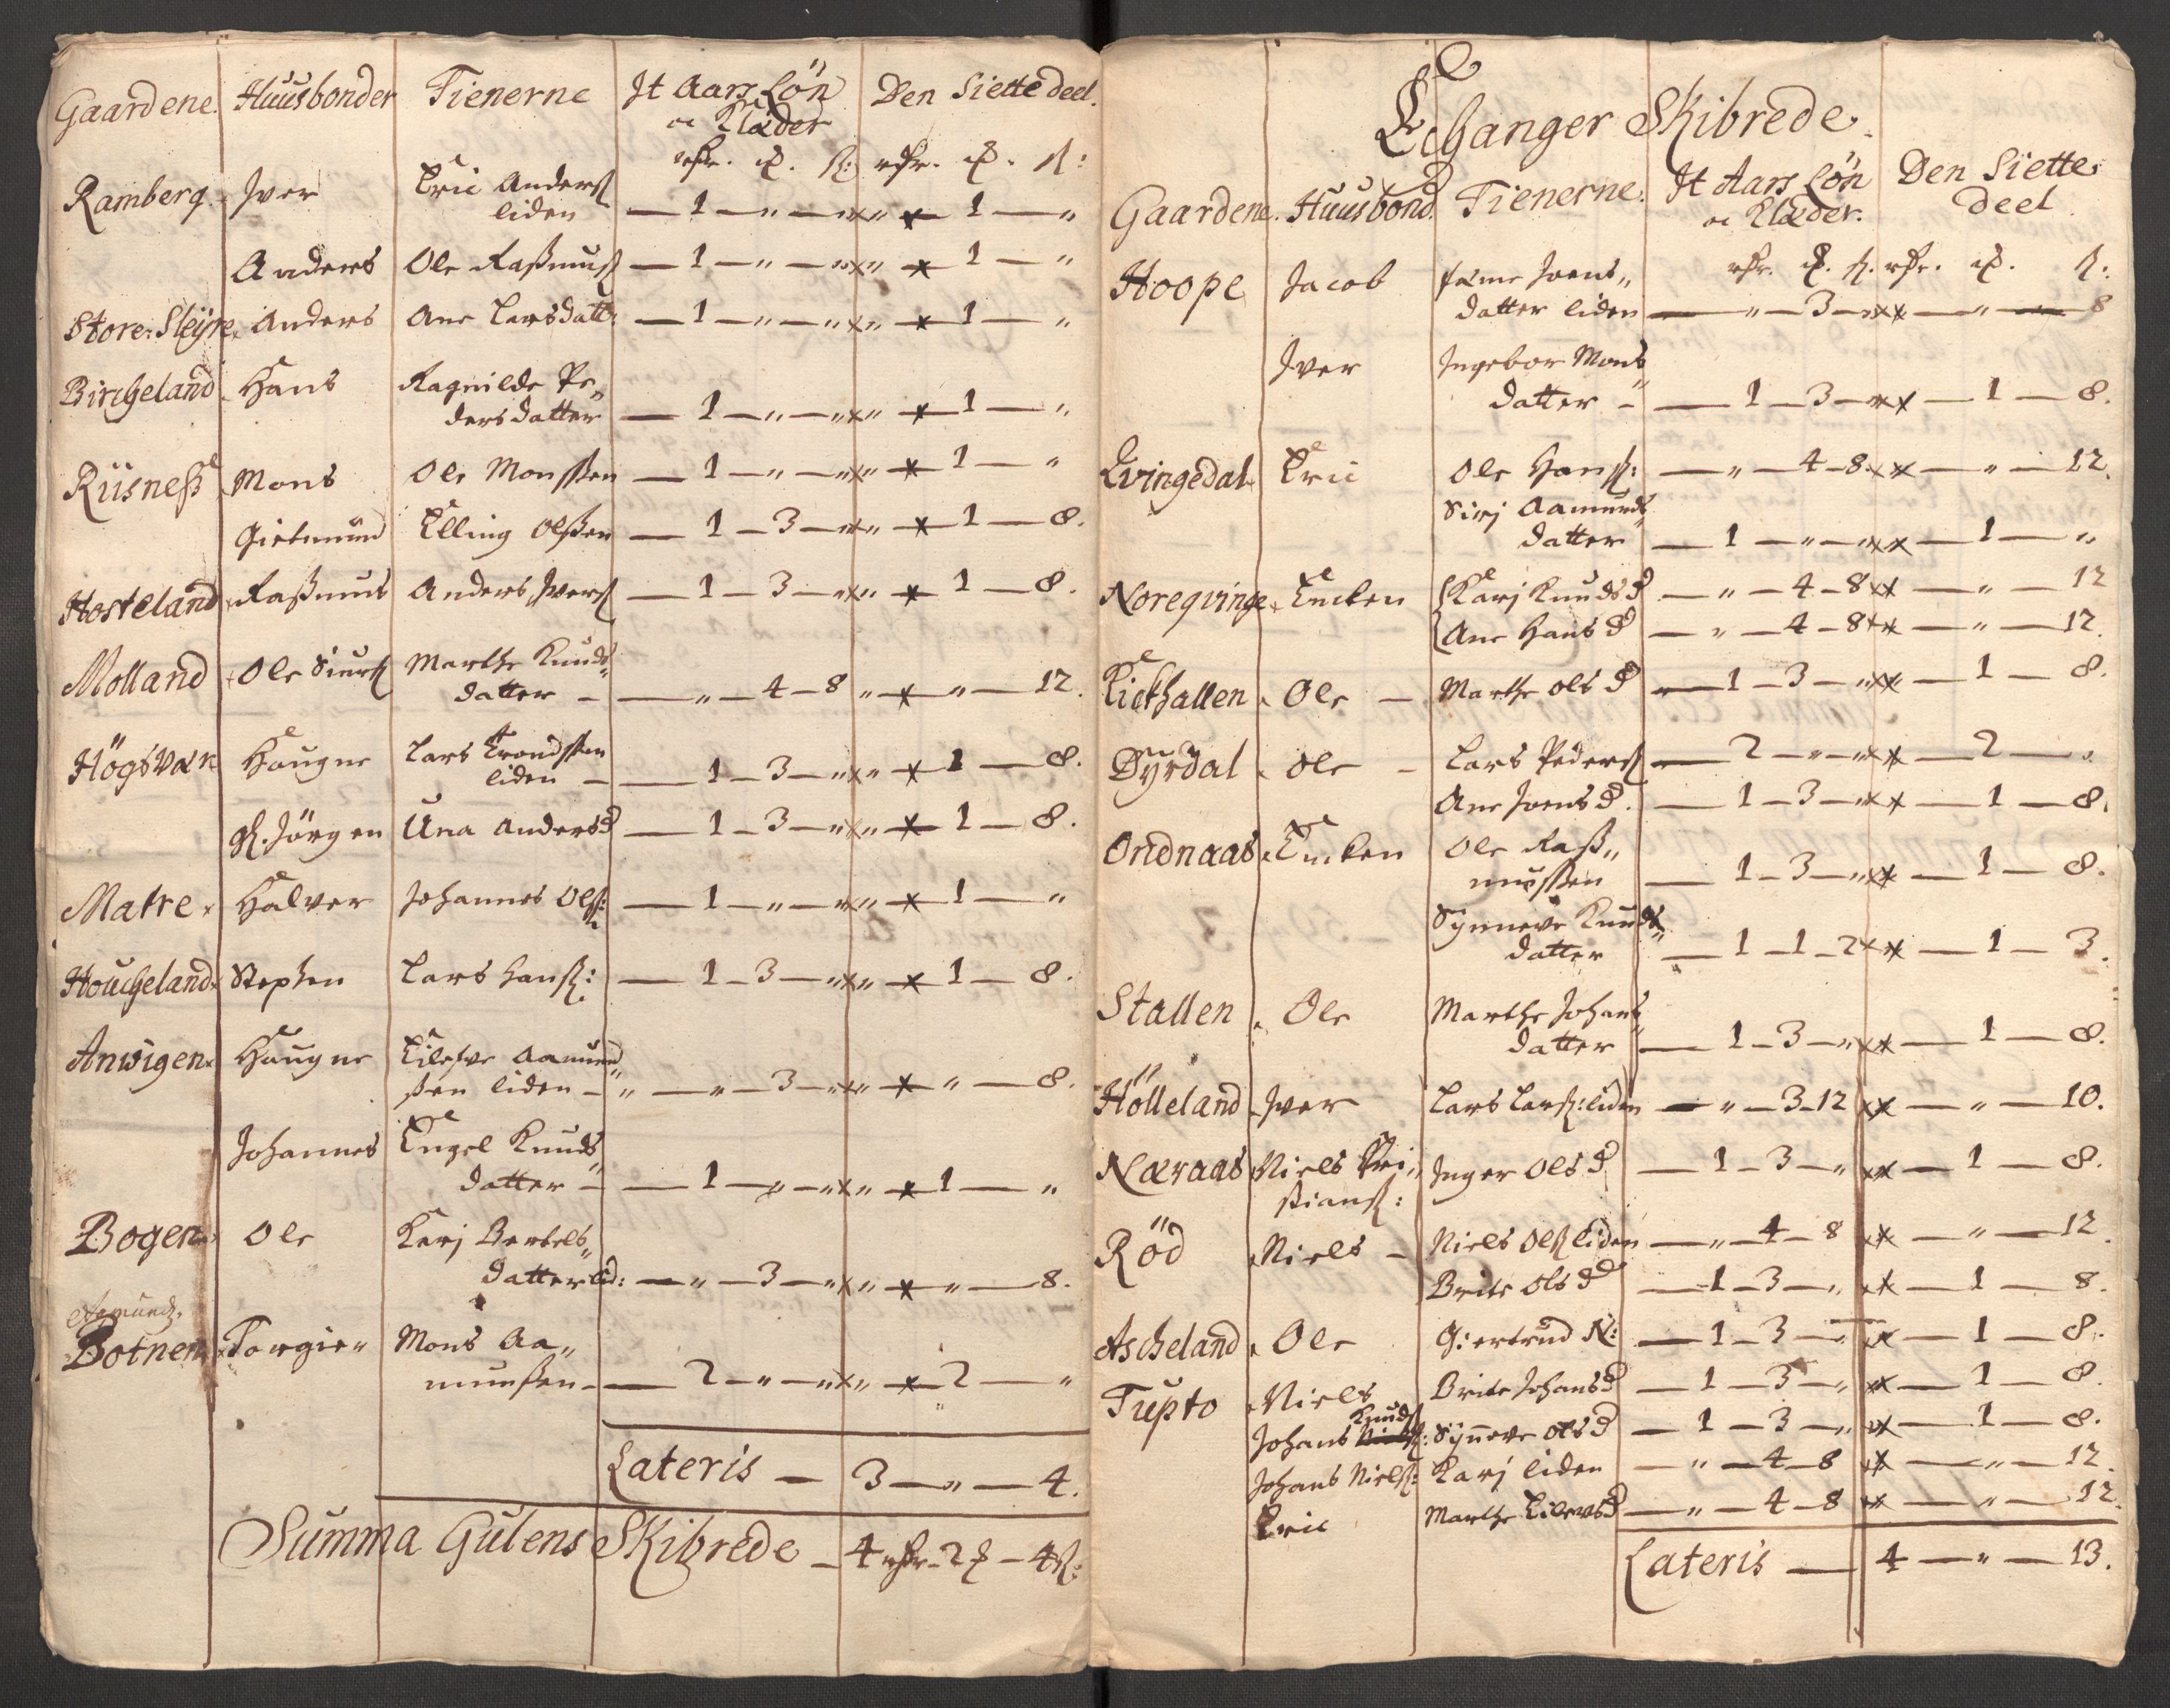 Gaardene. Huusbonder Tienerne It Aars Lön Den Siette deel.
oc Klæder
rdr. ort. s: rdr. ort. s:
Ramberg Iver Eric Anderss
liden — 1 — " — " " 1 — "
Anders Ole Rasmuss — 1 — " — " " 1 — "
Store: Sleÿre Anders Ane Larsdatt: — 1 — " — " " 1 — "
Bircheland Hans Ragnilde Pe„
dersdatter — 1 — " — " " 1 — "
Riisness Mons Ole Monssen — 1 — " — " " 1 — "
Giermund Elling Olssen — 1 — 3 — " " 1 — 8.
Hosteland Rasmus Anders Iverss — 1 — 3 — " " 1 — 8.
Molland Ole Siurss Marthe Knuds„
datter — — " — 4 — 8 " " — 12.
Högsvær Haugne Lars Trondssen
liden — — 1 — 3 — " " 1 — 8.
Jörgen Una Andersd — 1 — 3 — " " 1 — 8.
Matre Halver Johannes Olss: — 1 — " — " " 1 — "
Houcheland Stephen Lars Hanss: — 1 — 3 — " " 1 — 8.
Anwigen Haugne Aamund„
sen liden — " — " — 3 — " " " — 8.
Johannes Engel Knuds„
datter — — 1 — " — " " 1 — "
Bogen Ole Karj Bertels„
datter lid: — " — 3 — " " " — 8.
Aamunds.
Botnen Torgier Mons Aa„
munssen — — 2 — " — " " 2 — "
Lateris — 3 — " — 4.
Summa Gulens Skibrede — 4 rdr — 2 ort — 4 s:
Echanger Skibrede.
Gaardene. Huusbond. Tienerne. It Aars Lön Den Siette
oc Klæder. deel
rdr. ort. s. rdr. ort. s:
Hoope Jacob Joens„
datter liden — " — 3 — " — " — 8
Iver Ingebor Mons„
datter — — 1 — 3 — " — 1 — 8.
Evingedal Eric Ole Hanss: — " — 4 — 8 — " — 12.
Sirj Aamunds„
datter — 1 — " — " — 1 — "
Noreqvinge Encken Karj Knudsd — " — 4 — 8 — " — 12
Ane Hansd — " — 4 — 8 — " — 12.
Kiethallen Ole — Marthe Olsd — 1 — 3 — " — 1 — 8.
Dyrdal Ole — Lars Pederss — 2 — " — " — 2 — "
Ane Joensd. — 1 — 3 — " — 1 — 8.
Ondnaas Encken Ole Ras„
mussen — 1 — 3 — " — 1 — 8.
Synneve Knuds„
datter — 1 — 1 — 2 — 1 — 3.
Stallen Ole Marthe Johans„
datter — 1 — 3 — " — 1 — 8.
Hölleland Iver Lars Larss: liden — " — 3 — 12 — " — 10.
Næraas Niels Kri„ Inger Olsd — 1 — 3 — " — 1 — 8.
stianss:
Röd Niels — Niels Olss liden — " — 4 — 8 — " — 12.
Brite Olsd — 1 — 3 — " — 1 — 8.
Ascheland Ole Giertrud N: — 1 — 3 — " — 1 — 8.
Tupto Niels Brite Johansd — 1 — 3 — " — 1 — 8.
Knuds
Johans Synneve Olsd — 1 — 3 — " — 1 — 8.
Johans Nielss: Karj liden — " — 4 — 8 — " — 12.
Eric Marthe — " — 4 — 8 — " — 12.
Lateris — 4 — " — 13.